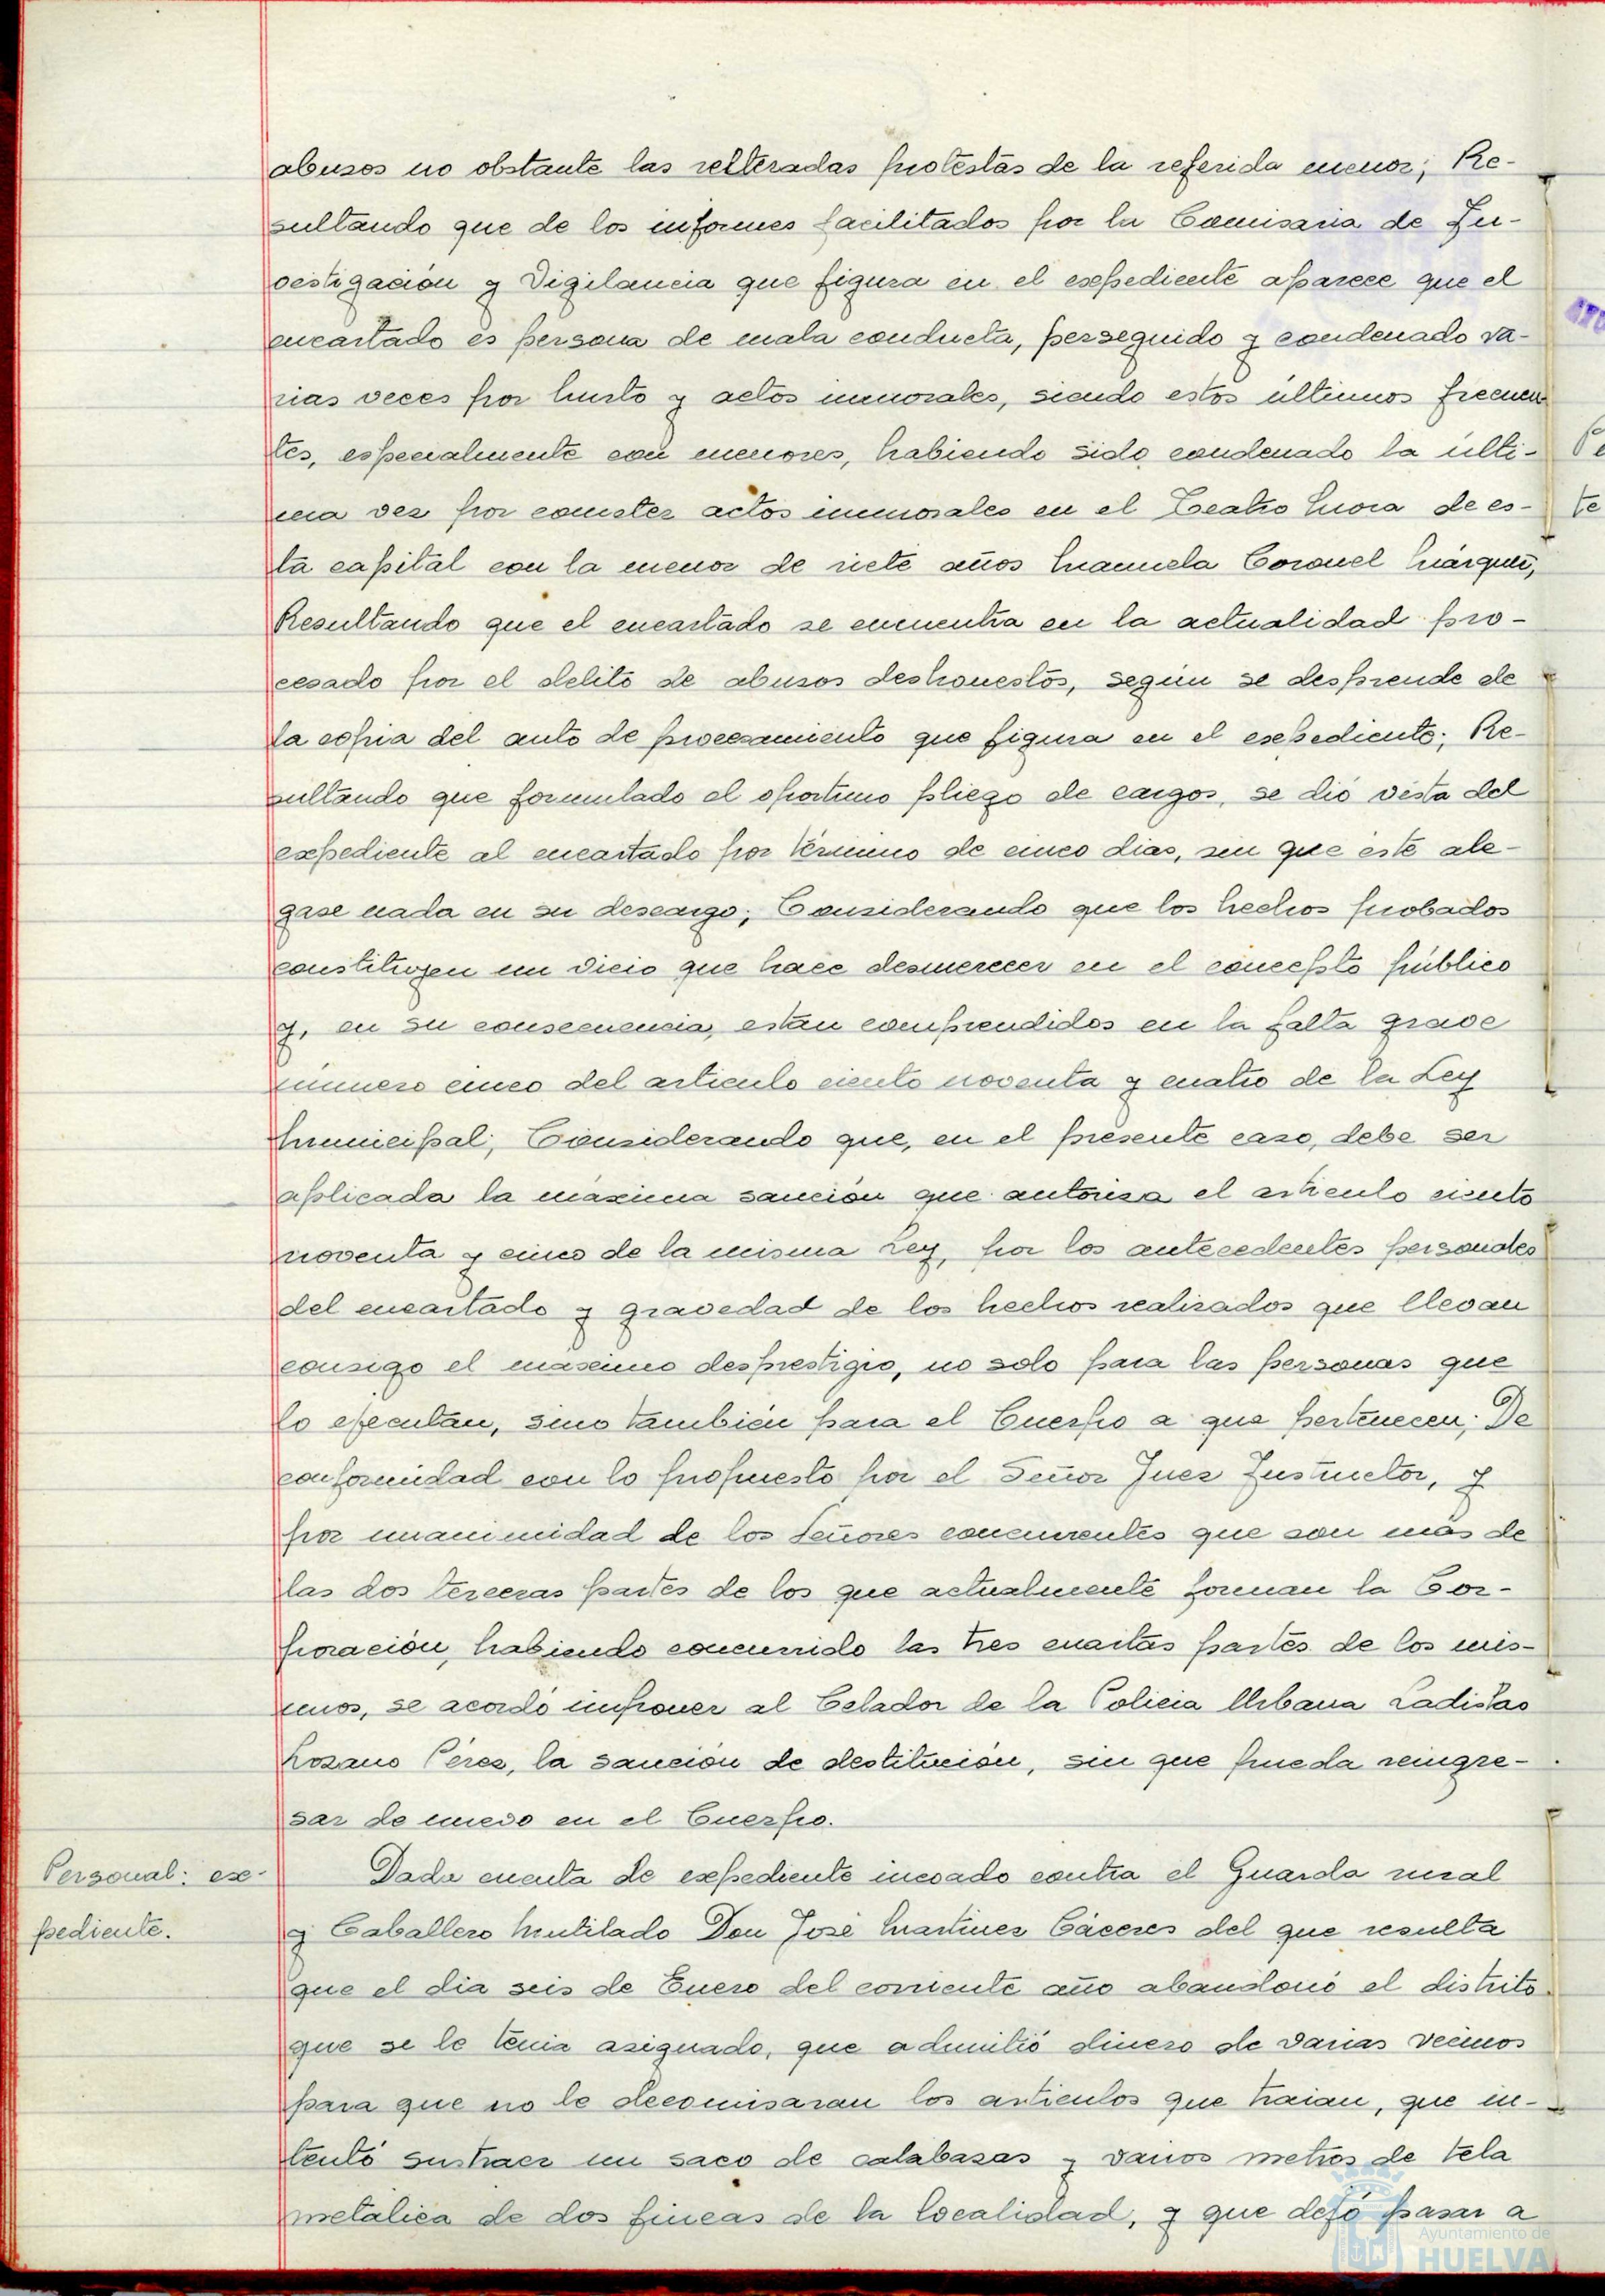 abusos no obstante las reiteradas protestas de la referida menor; Re-
sultando que de los informes facilitados por la Comisaria de In-
vestigación y Vigilancia que figura en el expediente aparece que el
encartado es persona de mala conducta, perseguido y condenado va-
rias veces por hurto y actos inmorales, siendo estos últimos frecuen
tes, especialmente con menores, habiendo sido condenado la últi-
ma vez por cometer actos inmorales en el Teatro Mora de es-
ta capital con la menor de siete años Manuela Coronel Márquez;
Resultando que el encartado se encuentra en la actualidad pro-
cesado por el delito de abusos deshonestos, según se desprende de
la copia del auto de procesamiento que figura en el expediente; Re-
sultando que formulado el oportuno pliego de cargos, se dió vista del
expediente al encartado por término de cinco dias, sin que éste ale-
gase nada en su descargo; Considerando que los hechos probados
constituyen un vicio que hace desmerecer en el concepto público
y, en su consecuencia, estan comprendidos en la falta grave
número cinco del articulo ciento noventa y cuatro de la Ley
Municipal; Considerando que, en el presente caso, debe ser
aplicada la máxima sanción que autoriza el articulo ciento
noventa y cinco de la misma Ley, por los antecedentes personales
del encartado y gravedad de los hechos realizados que llevan
consigo el máximo desprestigio, no solo para las personas que
lo ejecutan, sino también para el Cuerpo a que pertenecen; De
conformidad con lo propuesto por el Señor Juez Instructor, y
por unanimidad de los Señores concurrentes que son más de
las dos terceras partes de los que actualmente forman la Cor-
poración, habiendo concurrido las tres cuartas partes de los mis-
mos, se acordó imponer al Celador de la Policia Urbana Ladislao
Lozano Pérez, la sanción de destitución, sin que pueda reingre-
sar de nuevo en el Cuerpo.
Personal: ex-
pediente.
Dada cuenta de expediente incoado contra el Guarda rural
y Caballero Mutilado Don José Martinez Cáceres del que resulta
que el dia seis de Enero del corriente año abandonó el distrito
que se le tenia asignado, que admitió dinero de varias vecinos
para que no le decomisaran los articulos que traian, que in-
tentó sustraer un saco de calabazas y varios metros de tela
metálica de dos fincas de la localidad, y que dejó pasar a
Ayuntamiento de
HUELVA